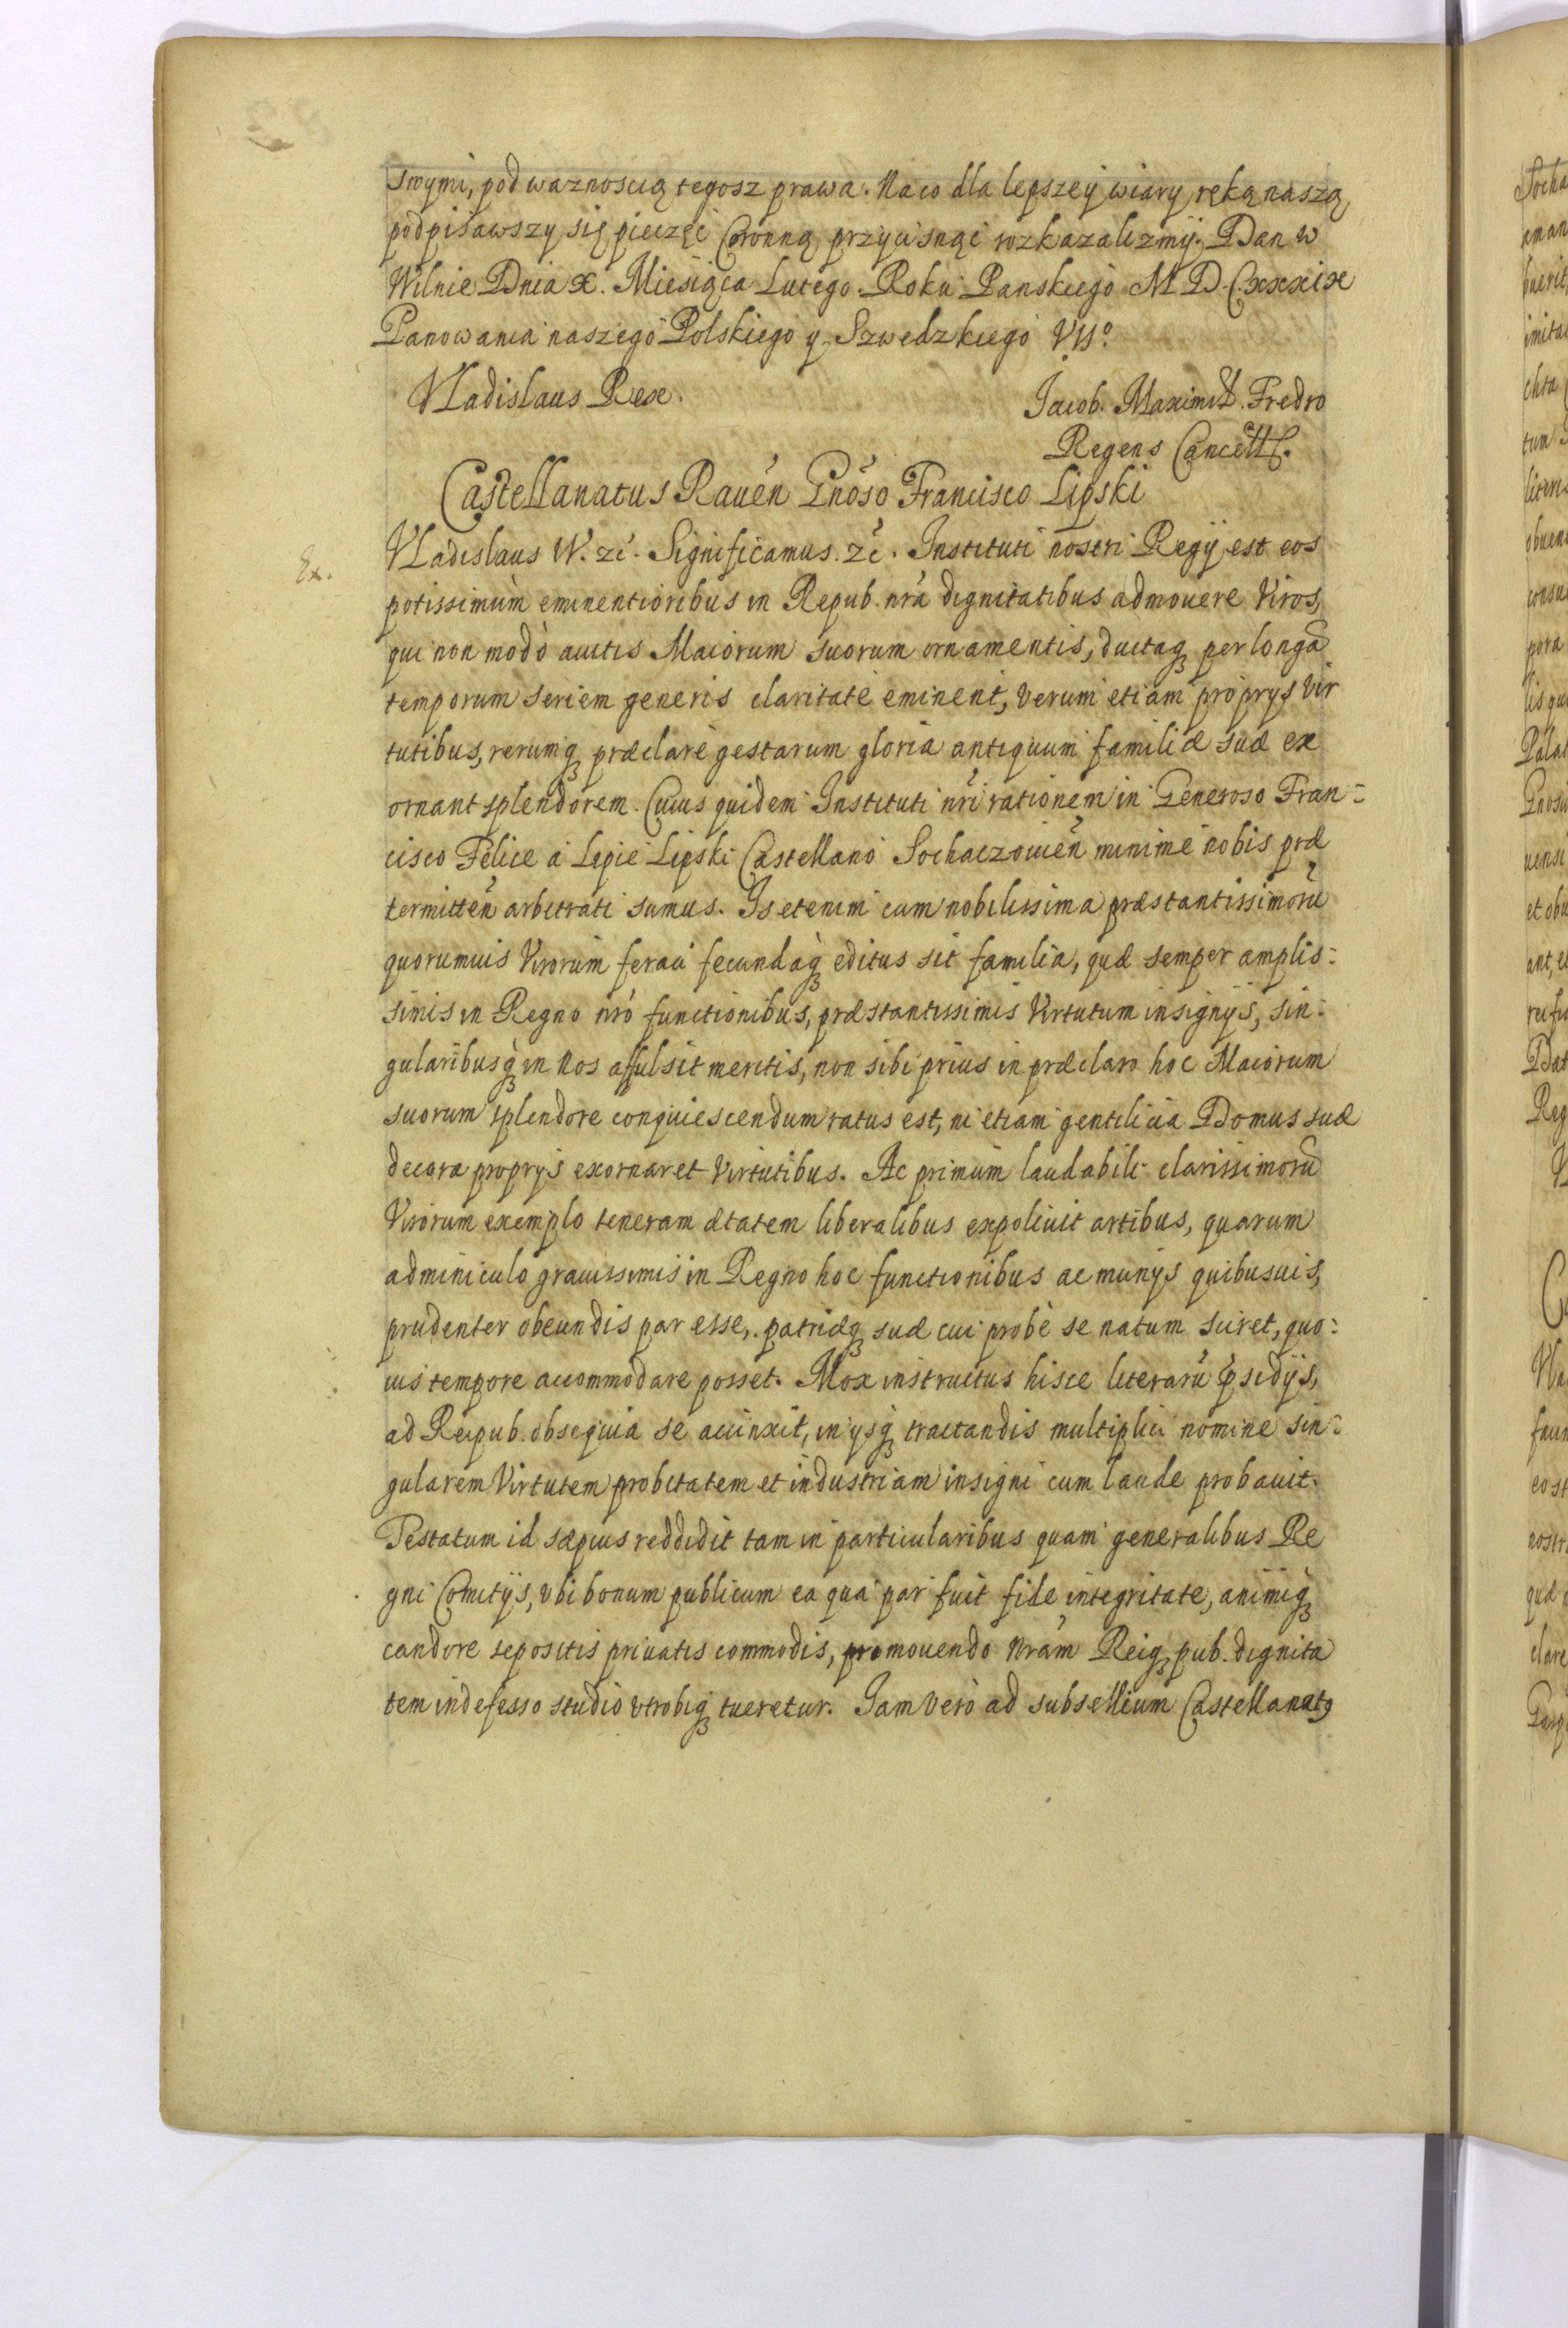 swymi, pod waznoscią tegosz prawa. Na co dla lepszey wiary ręką naszą
podpisawszy się pieczęć Coronną przycisnąć rozkazalizmy. Dan w
Wilnie Dnia X. Miesiąca Lutego. Roku Panskiego M D. Cxxxix
Panowania naszego Polskiego y Szwedzkiego VIIº.
Vladislaus Rex. Jacob. Maximil. Fredro
Regens Cancell.
Castellanatus Rauen Gnoso Francisco Lipski
Ex.
Vladislaus IV. zc. Significamus. zc. Instituti nostri Regij est eos
potissimùm eminentioribus in Repub. nrá dignitatibus admouere Viros,
qui non modò auitis Maiorum suorum ornamentis, ductaq per longã
temporum seriem generis claritate eminent, verum etiam proprys vir
tutibus, rerumq præclarè gestarum gloria antiquum familiæ suæ ex
ornant splendorem. Cuius quidem Instituti nri rationem in Generoso Fran=
cisco Felice a Lipie Lipski Castellano Sochaczouien minime nobis præ
termitten arbitrati sumus. Is etenim cum nobilissima præstantissimorũ
quorumuis Virorum feraci fecundaq editus sit familia, quæ semper amplis=
simis in Regno nro functionibus, præstantissimis Virtutum insignijs, sin=
gularibusq in Nos affulsit meritis, non sibi prius in præclaro hoc Maiorum
suorum splendore conquiescendum ratus est, ni etiam gentilicia Domus suæ
decora proprys exornaret Virtutibus. Ac primum laudabili clarissimorũ
Virorum exemplo teneram ætatem liberalibus expoliuit artibus, quarum
adminiculo grauissimis in Regno hoc functionibus ac munys quibusuis,
prudenter obeundis par esse, patriæq suæ cui probè se natum sciret, quo=
uis tempore accommodare posset. Mox instructus hisce literarũ psidijs,
ad Reipub. obsequia se accinxit, in ysq tractandis multiplici nomine sin=
gularem Virtutem probitatem et industriam insigni cum laude probauit.
Testatum id sæpius reddidit tam in particularibus quam generalibus Re
gni Comitijs, vbi bonum publicum ea qua par fuit fide integritate, animiq
candore sepositis priuatis commodis, promouendo Nram Reiq pub. dignita
tem indefesso studio vtrobiq tueretur. Iam verò ad subsellium Castellanatꝰ